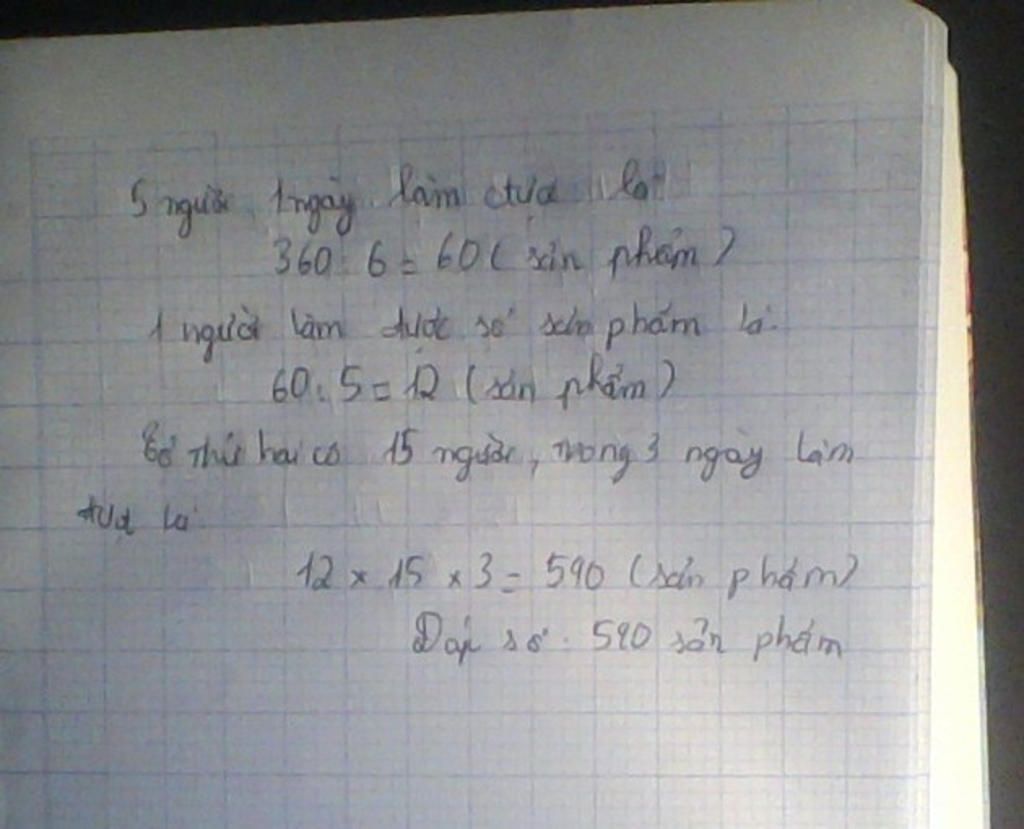 5 người 1 ngày làm được là
360 : 6 = 60 ( sản phẩm )
1 người làm được số sản phẩm là:
60 : 5 = 12 ( sản phẩm )
Tổ thứ hai có 15 người, trong 3 ngày làm
được là
12 x 15 x 3 = 540 ( sản phẩm )
Đáp số : 540 sản phẩm